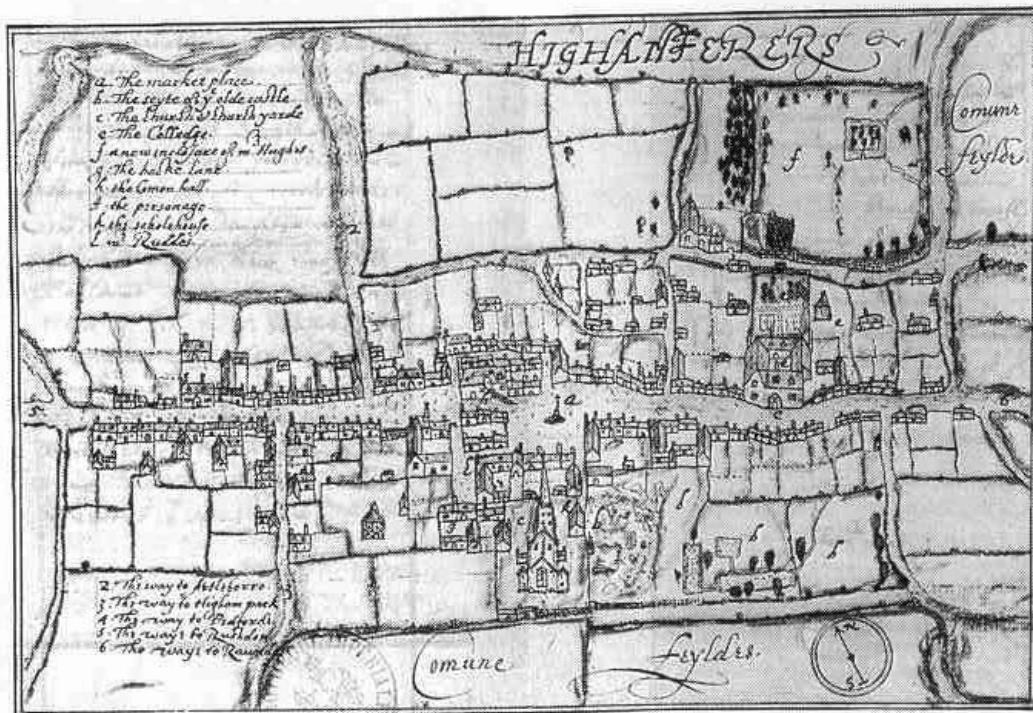 HIGHAM FERERS
a. The market place.
b. The scyte of yᵉ olde castle
c. The Church & Church yarde
e. The Colledge.
f. a new inclosure of mʳ Hughes.
g. The backe lane.
h. the comon hall.
the personage
k. the scholehouse
l. mʳ Rudde
Comune
feyldes
2
f
e
a
c
5
6
b
b
b
2. The way to
3. The way to Higham park
4. The way to Bedford.
5. The waye to Rushden
6. The waye to
Comune
feyldes.
N
S